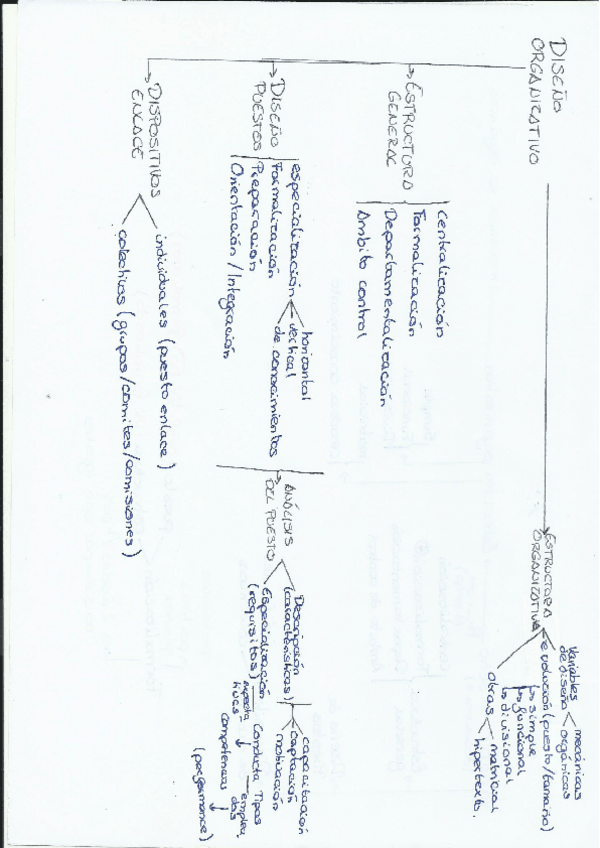 DISEÑO
ORGANIZATIVO
ESTRUCTURA
ORGANIZATIVA
Variables
de diseño
mecánicas
orgánicas
evolución (puesto/tamaño)
simple
funcional
divisional
otras
matricial
hipertexto.
ESTRUCTURA
GENERAL
Centralización
Formalización
Departamentalización
Ámbito control
DISEÑO
PUESTOS
especialización
horizontal
vertical
de conocimientos
Formalización
Preparación
Orientación / Integración
ANÁLISIS
DEL PUESTO
Descripción
(características)
capacitación
captación
motivación
Especialización
(requisitos)
Conducta
Tipos
emplea
dos
competencias
(performance)
DISPOSITIVOS
ENLACE
individuales (puesto enlace)
colectivos (grupos/comites/comisiones)